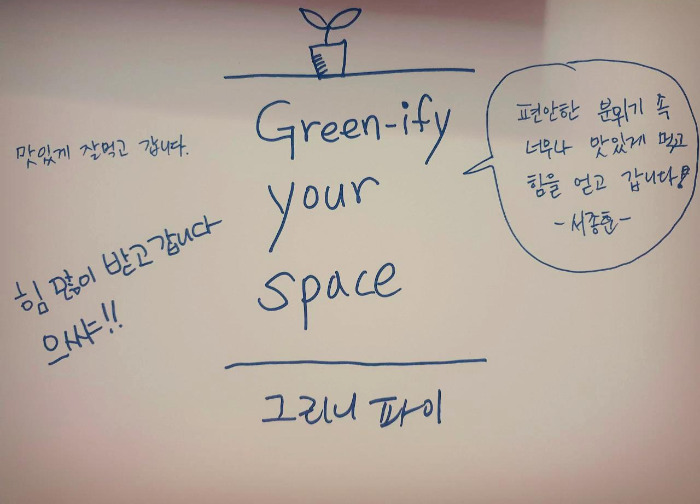 Green-ify
your
space
그리니 파이
맛있게 잘먹고 갑니다.
힘 많이 받고갑니다
으쌰!!
편안한 분위기 속
너무나 맛있게 먹고
힘을 얻고 갑니다!
-서종훈-